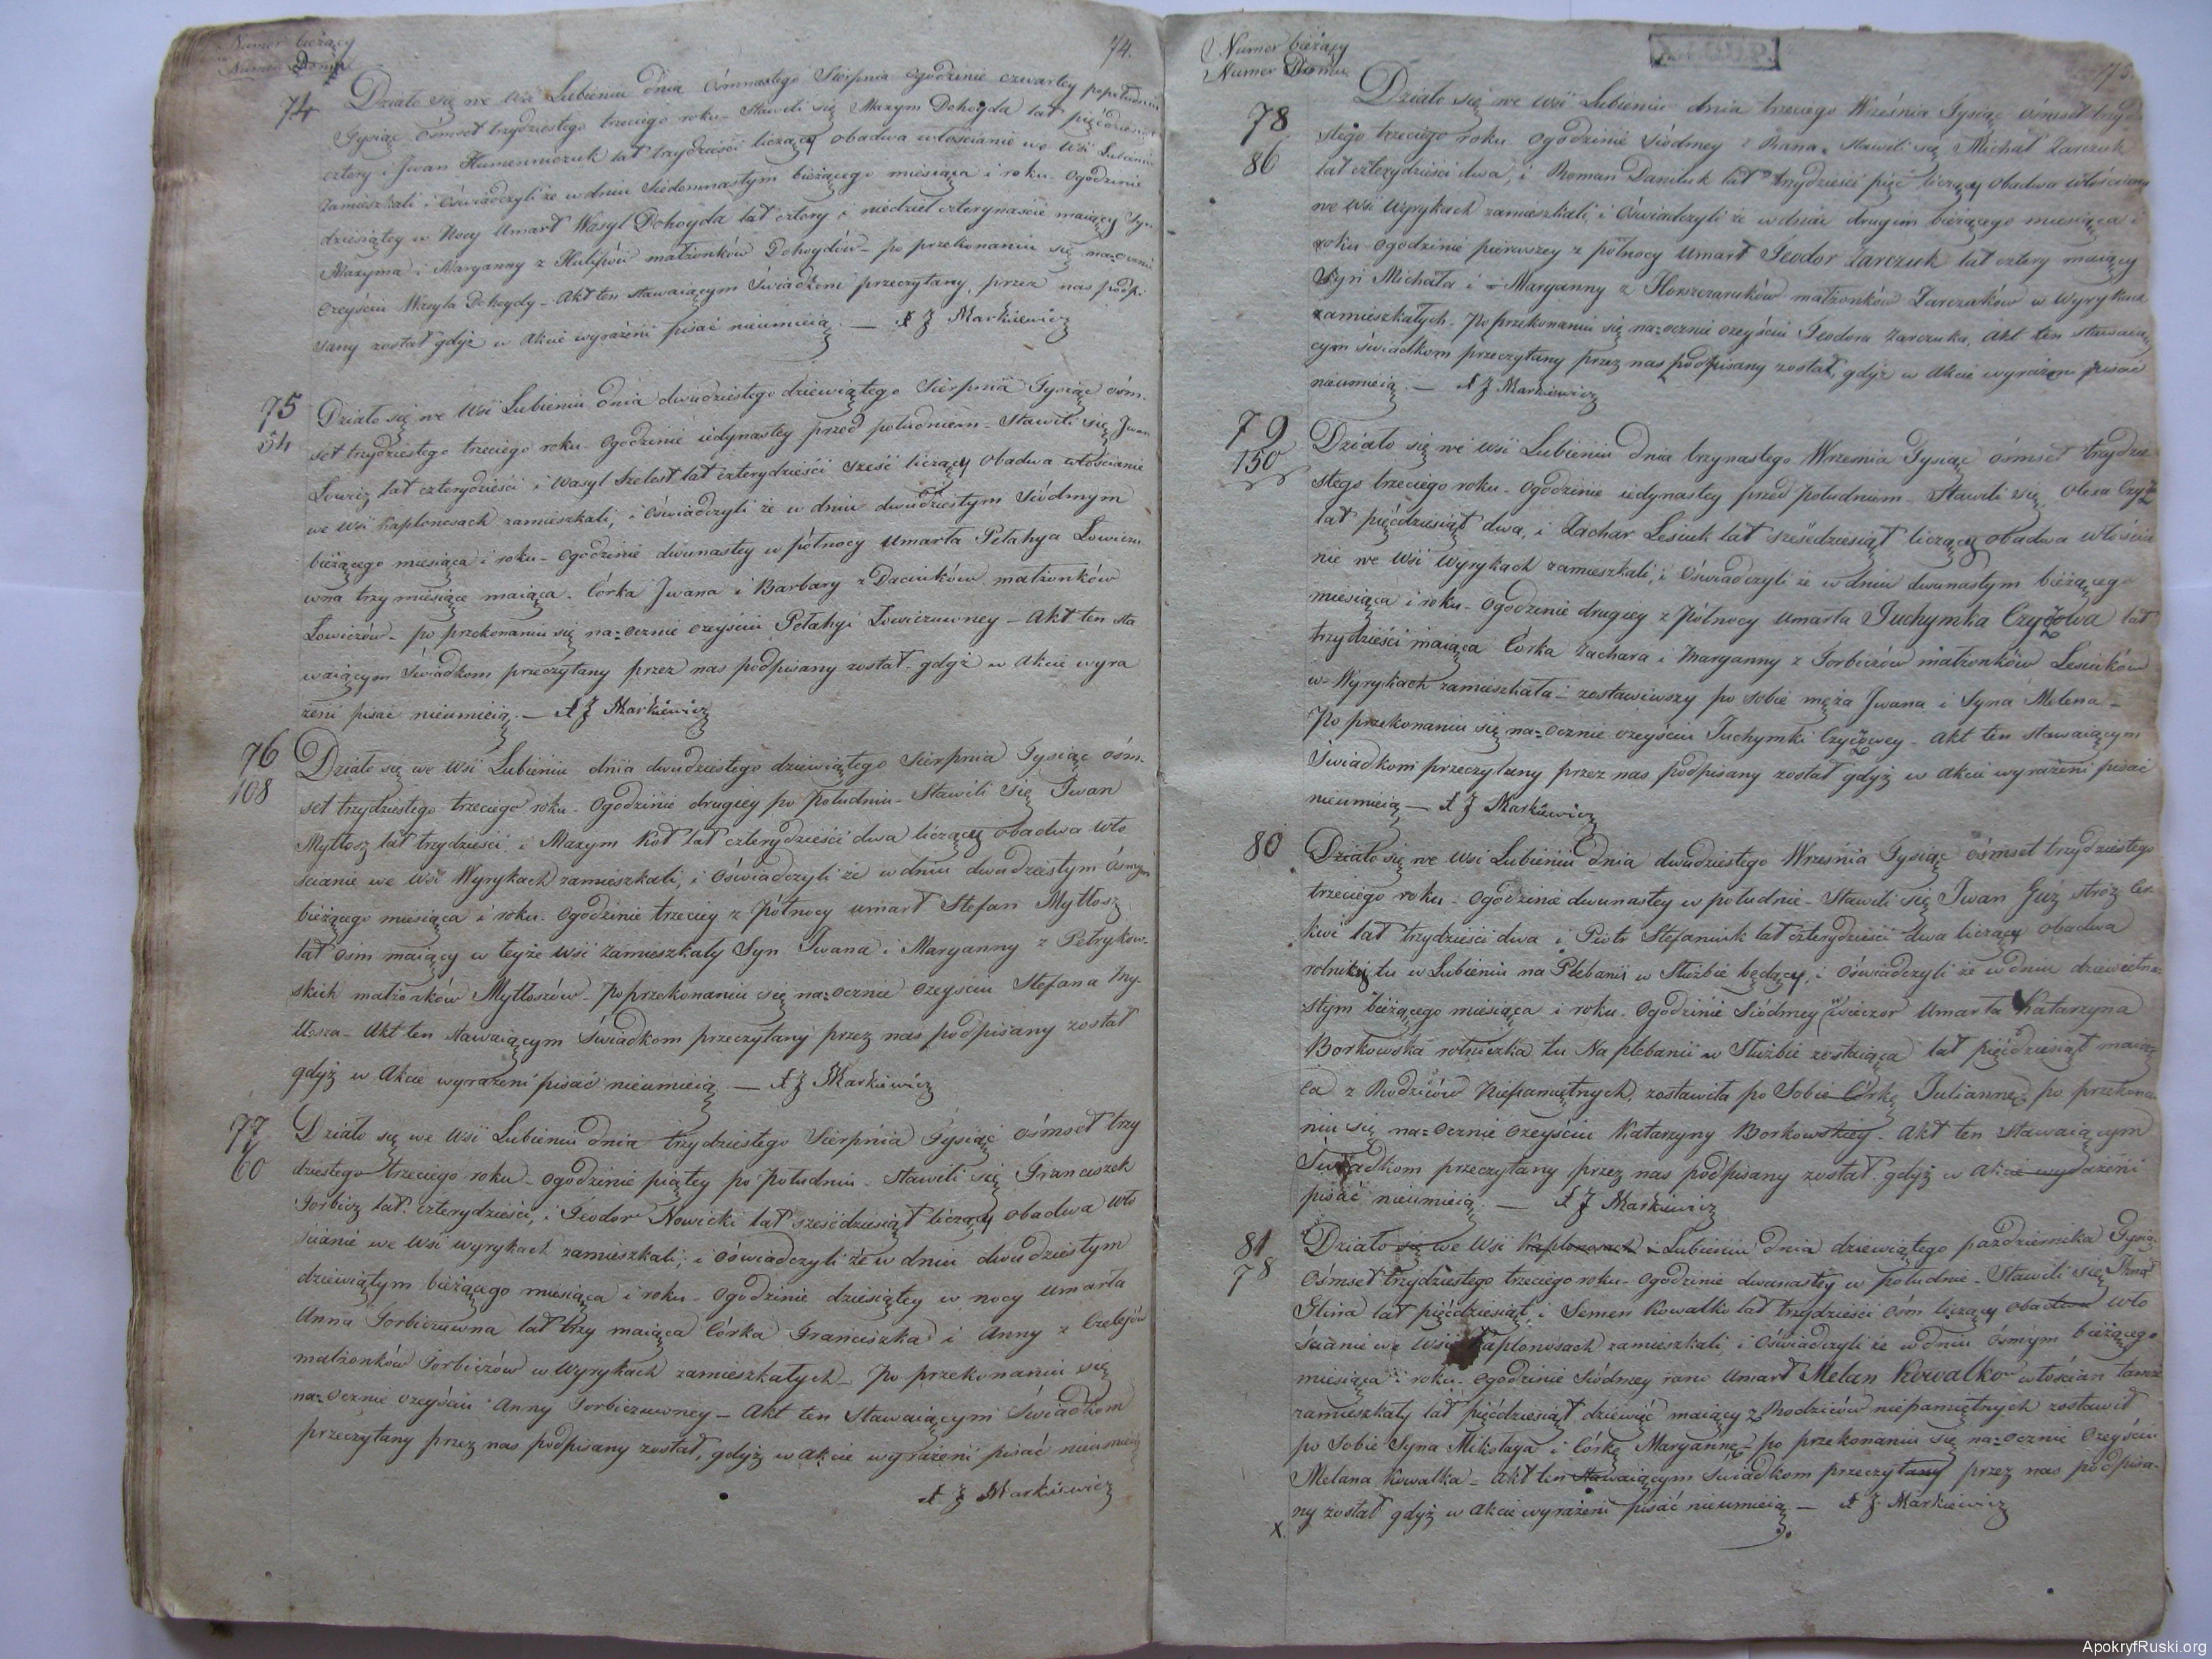 Numer bieżący
Numer Domu
74.
74
Działo się we Wsi Lubieniu dnia ósmnastego Sierpnia ogodzinie czwartey popołudniu
Tysiąc Ośmset trzydziestego trzeciego roku - Stawili się Maxym Dohoyda lat pięćdziesiąt
cztery i Jwan Humenniczuk lat trzydzieści liczący obadwa włościanie we Wsi Lubieniu
zamieszkali i Oświadczyli że w dniu Siedemnastym bieżącego miesiąca i roku - Ogodzinie
dziesiątey w Nocy Umarł Wasyl Dohoyda lat cztery i niedziel czternaście maiący Syn
Maxyma i Maryanny z Hulipów małżonków Dohoydów - po przekonaniu się na=ocznie
Ozeyściu Wasyla Dohoydy - Akt ten stawaiącym Świadkom przeczytany, przez nas podpi
sany został gdyż w Akcie wyrażeni pisać nieumieią. — A J Markiewicz
75
54
Działo się we Wsi Lubieniu dnia dwudziestego dziewiątego Sierpnia Tysiąc ośm-
set trzydziestego trzeciego roku - Ogodzinie iedynastey przed południem - Stawili się Jwan
Łowicz lat czterydzieści i Wasyl Szelest lat czterydzieści sześć liczący obadwa włościanie
we Wsi Kaplonosach zamieszkali, i Oświadczyli że w dniu dwudziestym Siódmym
bieżącego miesiąca i roku - Ogodzinie dwunastey w północy Umarła Pełahya Łowiczu
wna trzy miesiące maiąca. Córka Jwana i Barbary z Daciuków małżonków
Łowiczów - po przekonaniu się na=ocznie ozeyściu Pełahyi Łowiczuwney - Akt ten sta
waiącym Świadkom przeczytany przez nas podpisany został. gdyż w Akcie wyra
żeni pisać nieumieią. — A J Markiewicz
76
108
Działo się we Wsi Lubieniu dnia dwudziestego dziewiątego Sierpnia Tysiąc ośm-
set trzydziestego trzeciego roku - Ogodzinie drugiey po południu - Stawili Się Iwan
Mytłosz lat trzydzieści i Maxym Kot lat czterydzieści dwa liczący obadwa wło
ścianie we Wsi Wyrykach zamieszkali, i Oświadczyli że w dniu dwudziestym ósmym
bieżącego miesiąca i roku - Ogodzinie trzeciey z Północy umarł Stefan Mytłosz
lat ośm maiący w teyże wsi zamieszkały Syn Iwana i Maryanny z Petrykow-
skich małżonków Mytłoszów - Poprzekonaniu się na=ocznie Ozeyściu Stefana My-
tłosza - Akt ten stawaiącym Świadkom przeczytany przez nas podpisany został
gdyż w Akcie wyrażeni pisać nieumieią — A J Markiewicz
77
60
Działo się we Wsi Lubieniu dnia trzydziestego Sierpnia Tysiąc ośmset trzy
dziestego trzeciego roku - ogodzinie piątey po Południu - stawili się Franciszek
Torbicz lat. czterydzieści, i Teodor Nowicki lat sześćdziesiąt liczący obadwa wło
ścianie we Wsi wyrykach zamieszkali, i oświadczyli że w dniu dwudziestym
dziewiątym bieżącego miesiąca i roku - Ogodzinie dziesiątey w nocy umarła
Anna Torbiczuwna lat trzy maiąca Córka Franciszka i Anny z Czelejów
małżonków Torbiczów w Wyrykach zamieszkałych - Po przekonaniu się
na=ocznie ozeyściu Anny Torbiczuwney - Akt ten Stawaiącym Świadkom
przeczytany przez nas podpisany został, gdyż w Akcie wyrażeni pisać nieumieią
A J Markiewicz
Numer bieżący
Numer Domu
75.
78
86
Działo się we Wsi Lubieniu dnia trzeciego Września Tysiąc ośmset trzydzie
stego trzeciego roku Ogodzinie Siódmey z Rana. Stawili się Michał Zarczuk
lat czterydzieści dwa, i Roman Daniluk lat trzydzieści pięć liczący obadwa włościanie
we Wsi Wyrykach zamieszkali, i Oświadczyli że w dniu drugim bieżącego miesiąca i
roku Ogodzinie pierwszey z północy Umarł Teodor Zarczuk lat cztery maiący
Syn Michała i Maryanny z Horszczaruków małżonków Zarczuków w Wyrykach
zamieszkałych. Po przekonaniu się na=ocznie ozeyściu Teodora Zarczuka, Akt ten stawaią
cym świadkom przeczytany przez nas podpisany został, gdyż w Akcie wyrażeni pisać
nieumieią. — A J Markiewicz
79
150
Działo się we Wsi Lubieniu dnia trzynastego Września Tysiąc ośmset trzydzie
stego trzeciego roku - Ogodzinie iedynastey przed południem - Stawili się Olexa Czyż
lat pięćdziesiąt dwa, i Zachar Lesiuk lat sześćdziesiąt liczący obadwa włościa
nie we Wsi Wyrykach zamieszkali, i Oświadczyli że w dniu dwunastym bieżącego
miesiąca i roku - Ogodzinie drugiey z Północy umarła Juchymka Czyżowa lat
trzydzieści maiąca Córka Zachara i Maryanny z Torbiczów małżonków Lesiuków
w Wyrykach zamieszkała - zostawiwszy po sobie męża Jwana i Syna Melena -
Po przekonaniu się na=ocznie ozeyściu Juchymki Czyżowey - Akt ten stawaiącym
Świadkom przeczytany przez nas podpisany został gdyż w Akcie wyrażeni pisać
nieumieią — A J Markiewicz
80
Działo się we Wsi Lubieniu dnia dwudziestego Września Tysiąc ośmset trzydziestego
trzeciego roku - Ogodzinie dwunastey w południe - Stawili się Iwan Guz stróż Cer
kwi lat trzydzieści dwa i Piotr Stefaniuk lat czterydzieści dwa liczący obadwa
rolniki tu w Lubieniu na Plebanii w Służbie będący, i Oświadczyli że w dniu dziewiętna
stym bieżącego miesiąca i roku. Ogodzinie Siódmey wieczor Umarła Katarzyna
Borkowska rolniczka tu Na plebanii w Służbie zostaiąca lat pięćdziesiąt maią
ca z Rodziców Niepamiętnych, zostawiła po Sobie Córkę Juliannę - po przekona
niu się na=ocznie Ozeyściu Katarzyny Borkowskiey - Akt ten stawaiącym
Świadkom przeczytany przez nas podpisany został. gdyż w Akcie wyrażeni
pisać nieumieią — A J Markiewicz
81
78
Działo się we Wsi Kaplonosach Lubieniu dnia dziewiątego października Tysiąc
Ośmset trzydziestego trzeciego roku - Ogodzinie dwunastey w południe - Stawili się
Glina lat pięćdziesiąt i Semen Kowalko lat trzydzieści ośm liczący obadwa wło
ścianie we Wsi Kaplonosach zamieszkali, i Oświadczyli że w dniu Ósmym bieżącego
miesiąca i roku - Ogodzinie Siódmey rano Umarł Melan Kowalko włościan tamże
zamieszkały lat pięćdziesiąt dziewięć maiący z Rodziców niepamiętnych zostawił
po Sobie Syna Mikołaya i Córkę Maryannę - po przekonaniu się na=ocznie Ozeyściu
Melana Kowalka - Akt ten stawaiącym Świadkom przeczytany przez nas podpisa-
ny został gdyż w Akcie wyrażeni pisać nieumieią — A J Markiewicz
x
ApokryfRuski.org